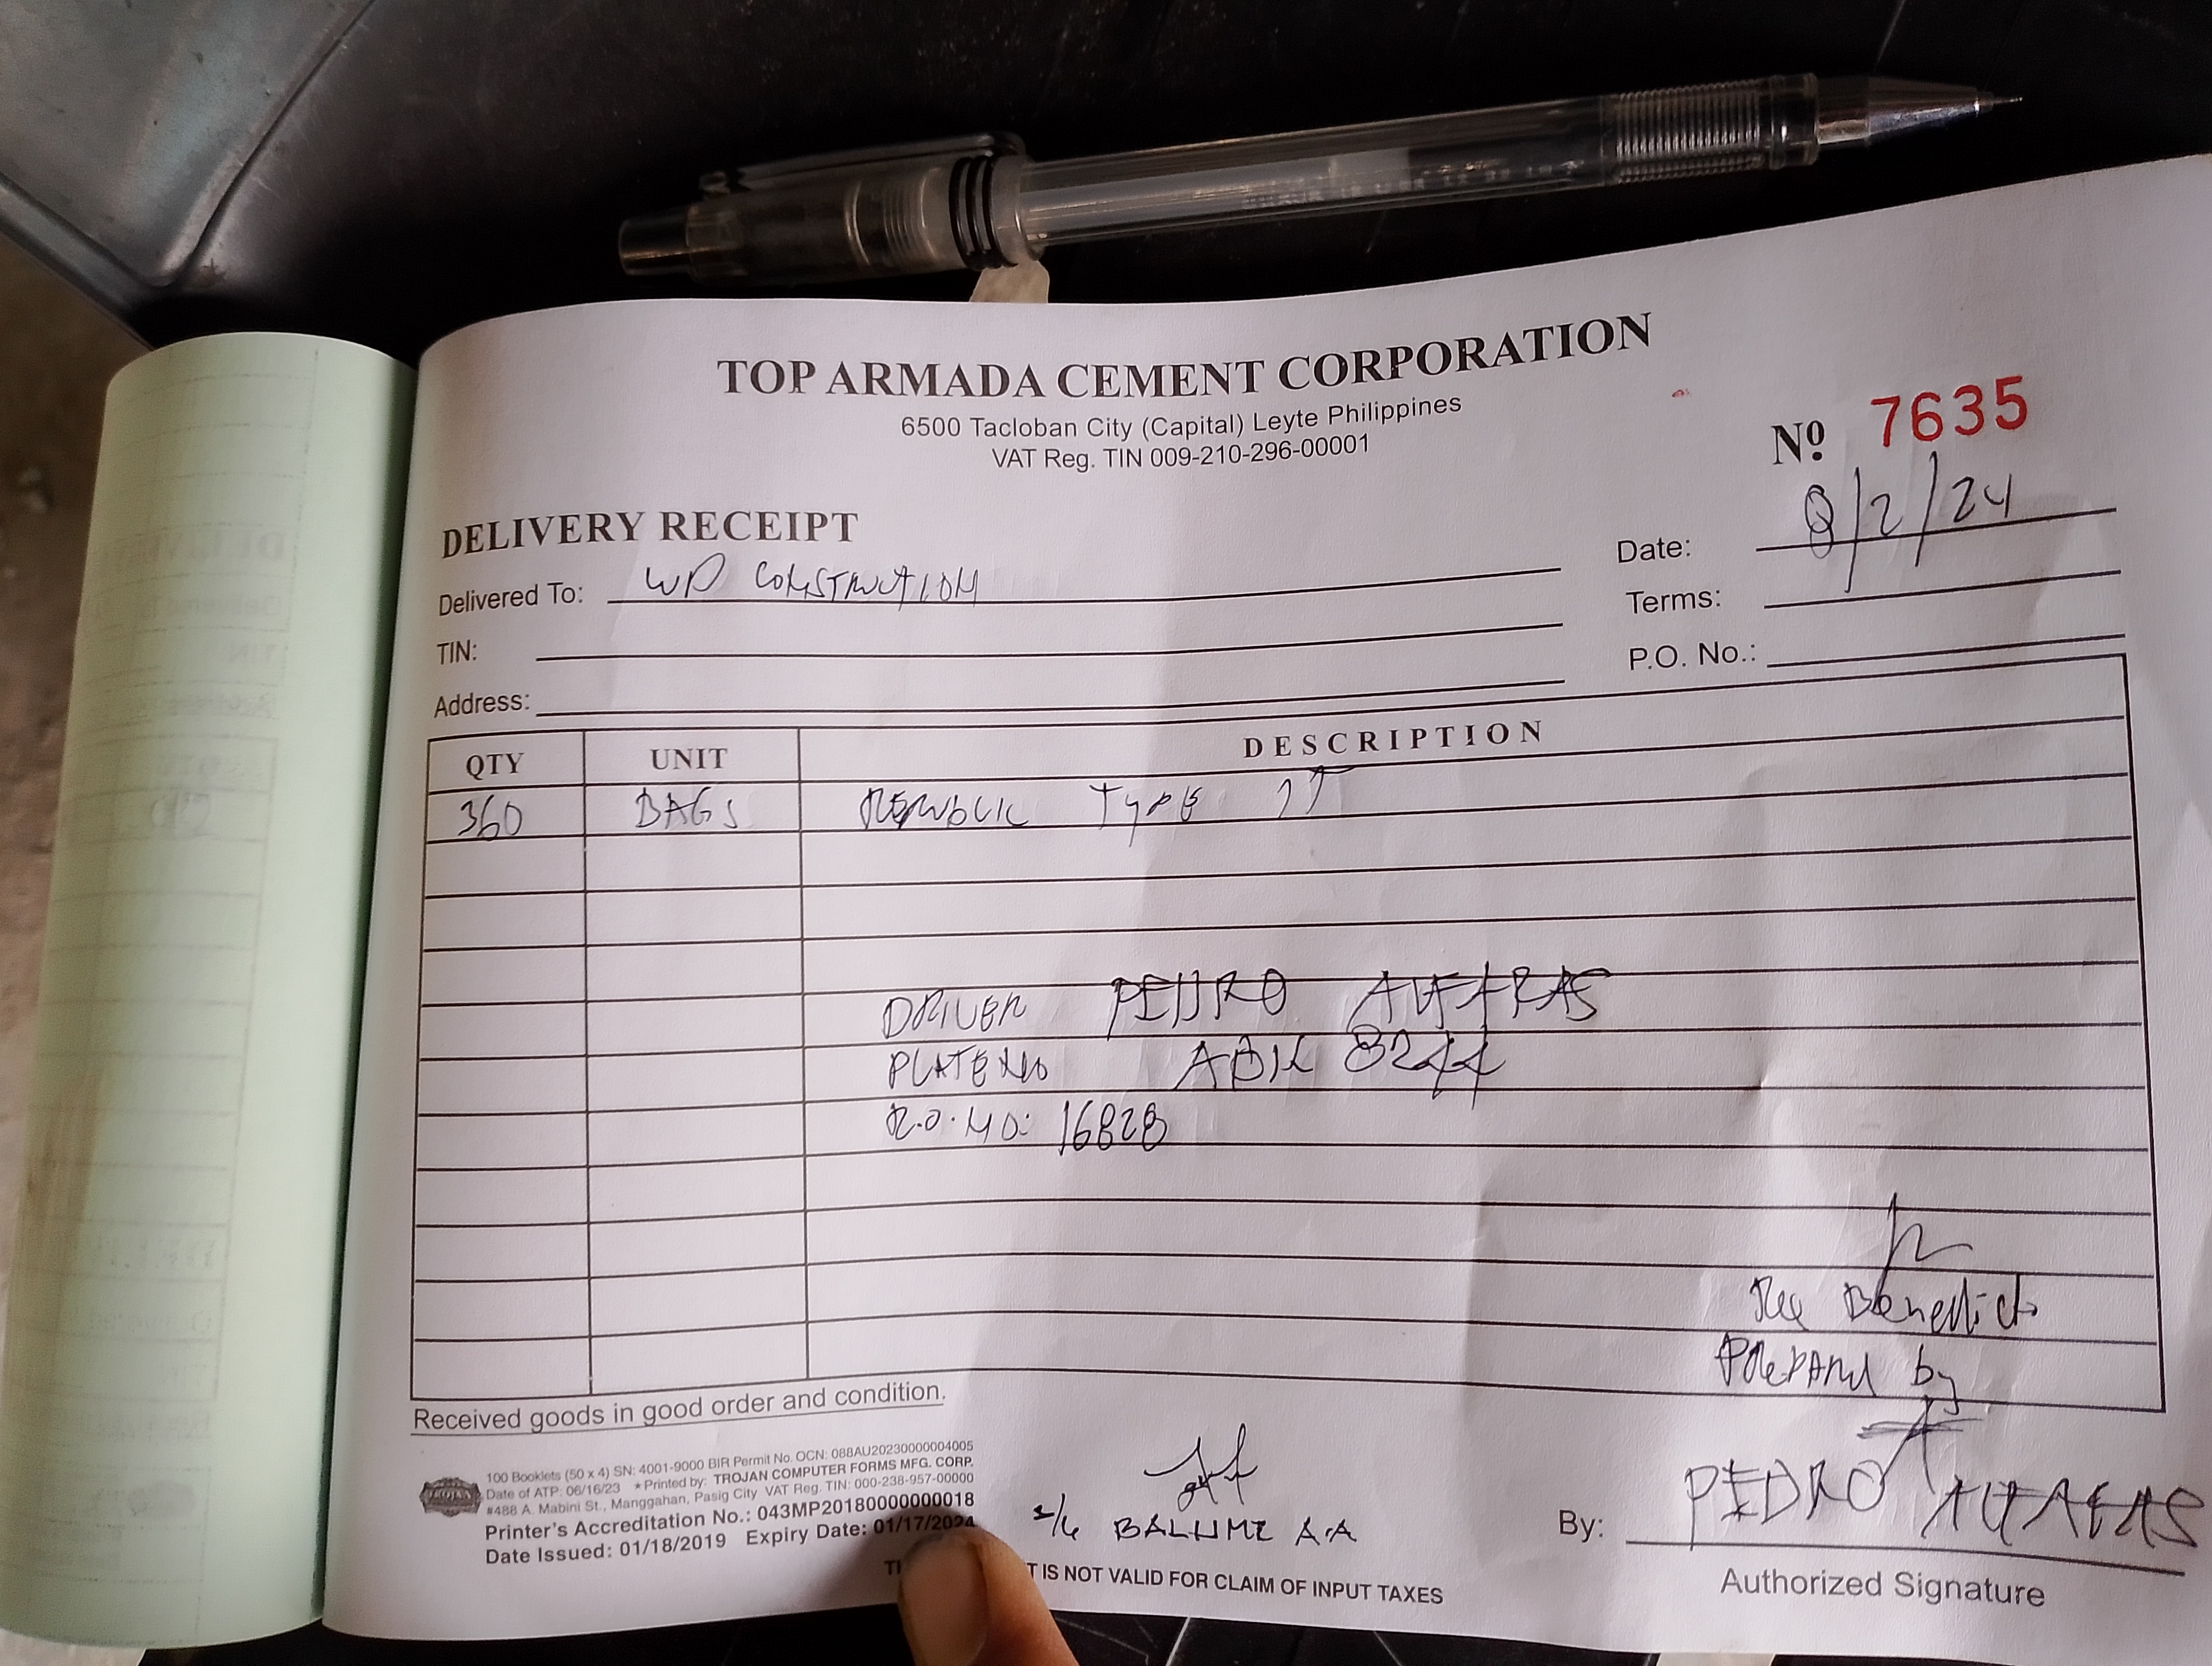 TOP ARMADA CEMENT CORPORATION
6500 Tacloban City (Capital) Leyte Philippines
VAT Reg. TIN 009-210-296-00001
Nº 7635
DELIVERY RECEIPT
Date: 8/2/24
Delivered To: WD CONSTRUCTION
Terms:
TIN:
P.O. No.:
Address:
QTY UNIT DESCRIPTION
360 BAGS REPUBLIC TYPE 1T
DRIVER PEDRO
PLATE NO ABK 8244
R.O. NO: 16828
Benedicto
Prepared by
Received goods in good order and condition.
100 Booklets (50 x 4) SN: 4001-9000 BIR Permit No. OCN: 088AU20230000004005
Date of ATP: 06/16/23 ★ Printed by: TROJAN COMPUTER FORMS MFG. CORP.
#488 A. Mabini St., Manggahan, Pasig City VAT Reg. TIN: 000-238-957-00000
Printer's Accreditation No.: 043MP20180000000018
Date Issued: 01/18/2019 Expiry Date: 01/17/2024
TROJAN
S/G BALUME A.A
By: PEDRO
Authorized Signature
T IS NOT VALID FOR CLAIM OF INPUT TAXES